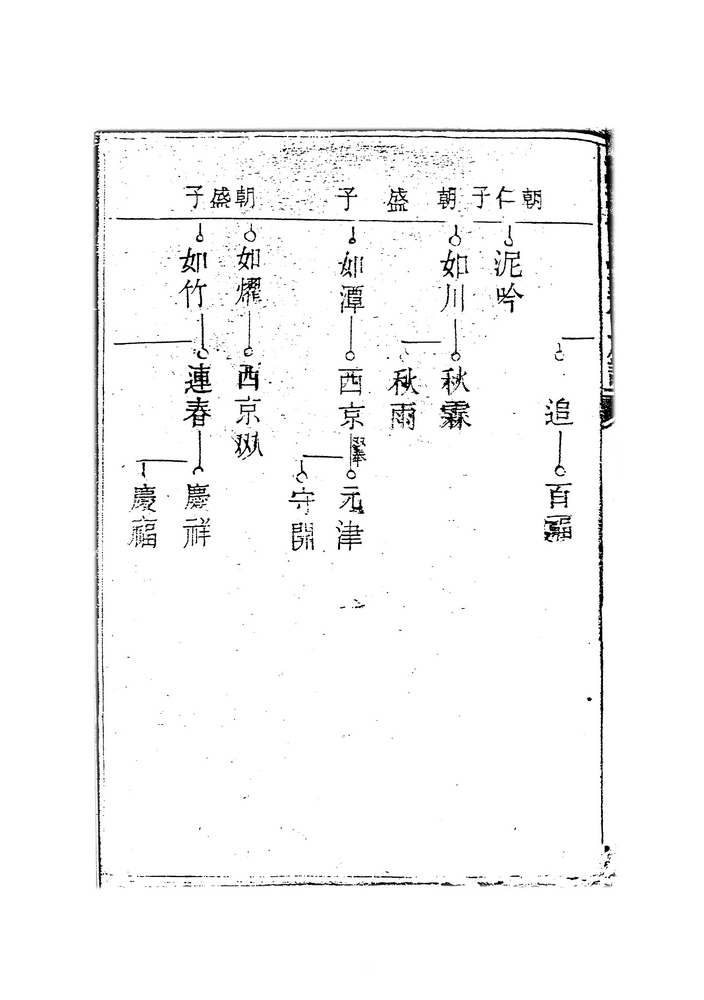 朝仁子
朝盛子
朝盛子
追
百福
泥吟
如川
秋霖
秋雨
如潭
西京
元津
守開
如燿
西京
如竹
連春
慶祥
慶福